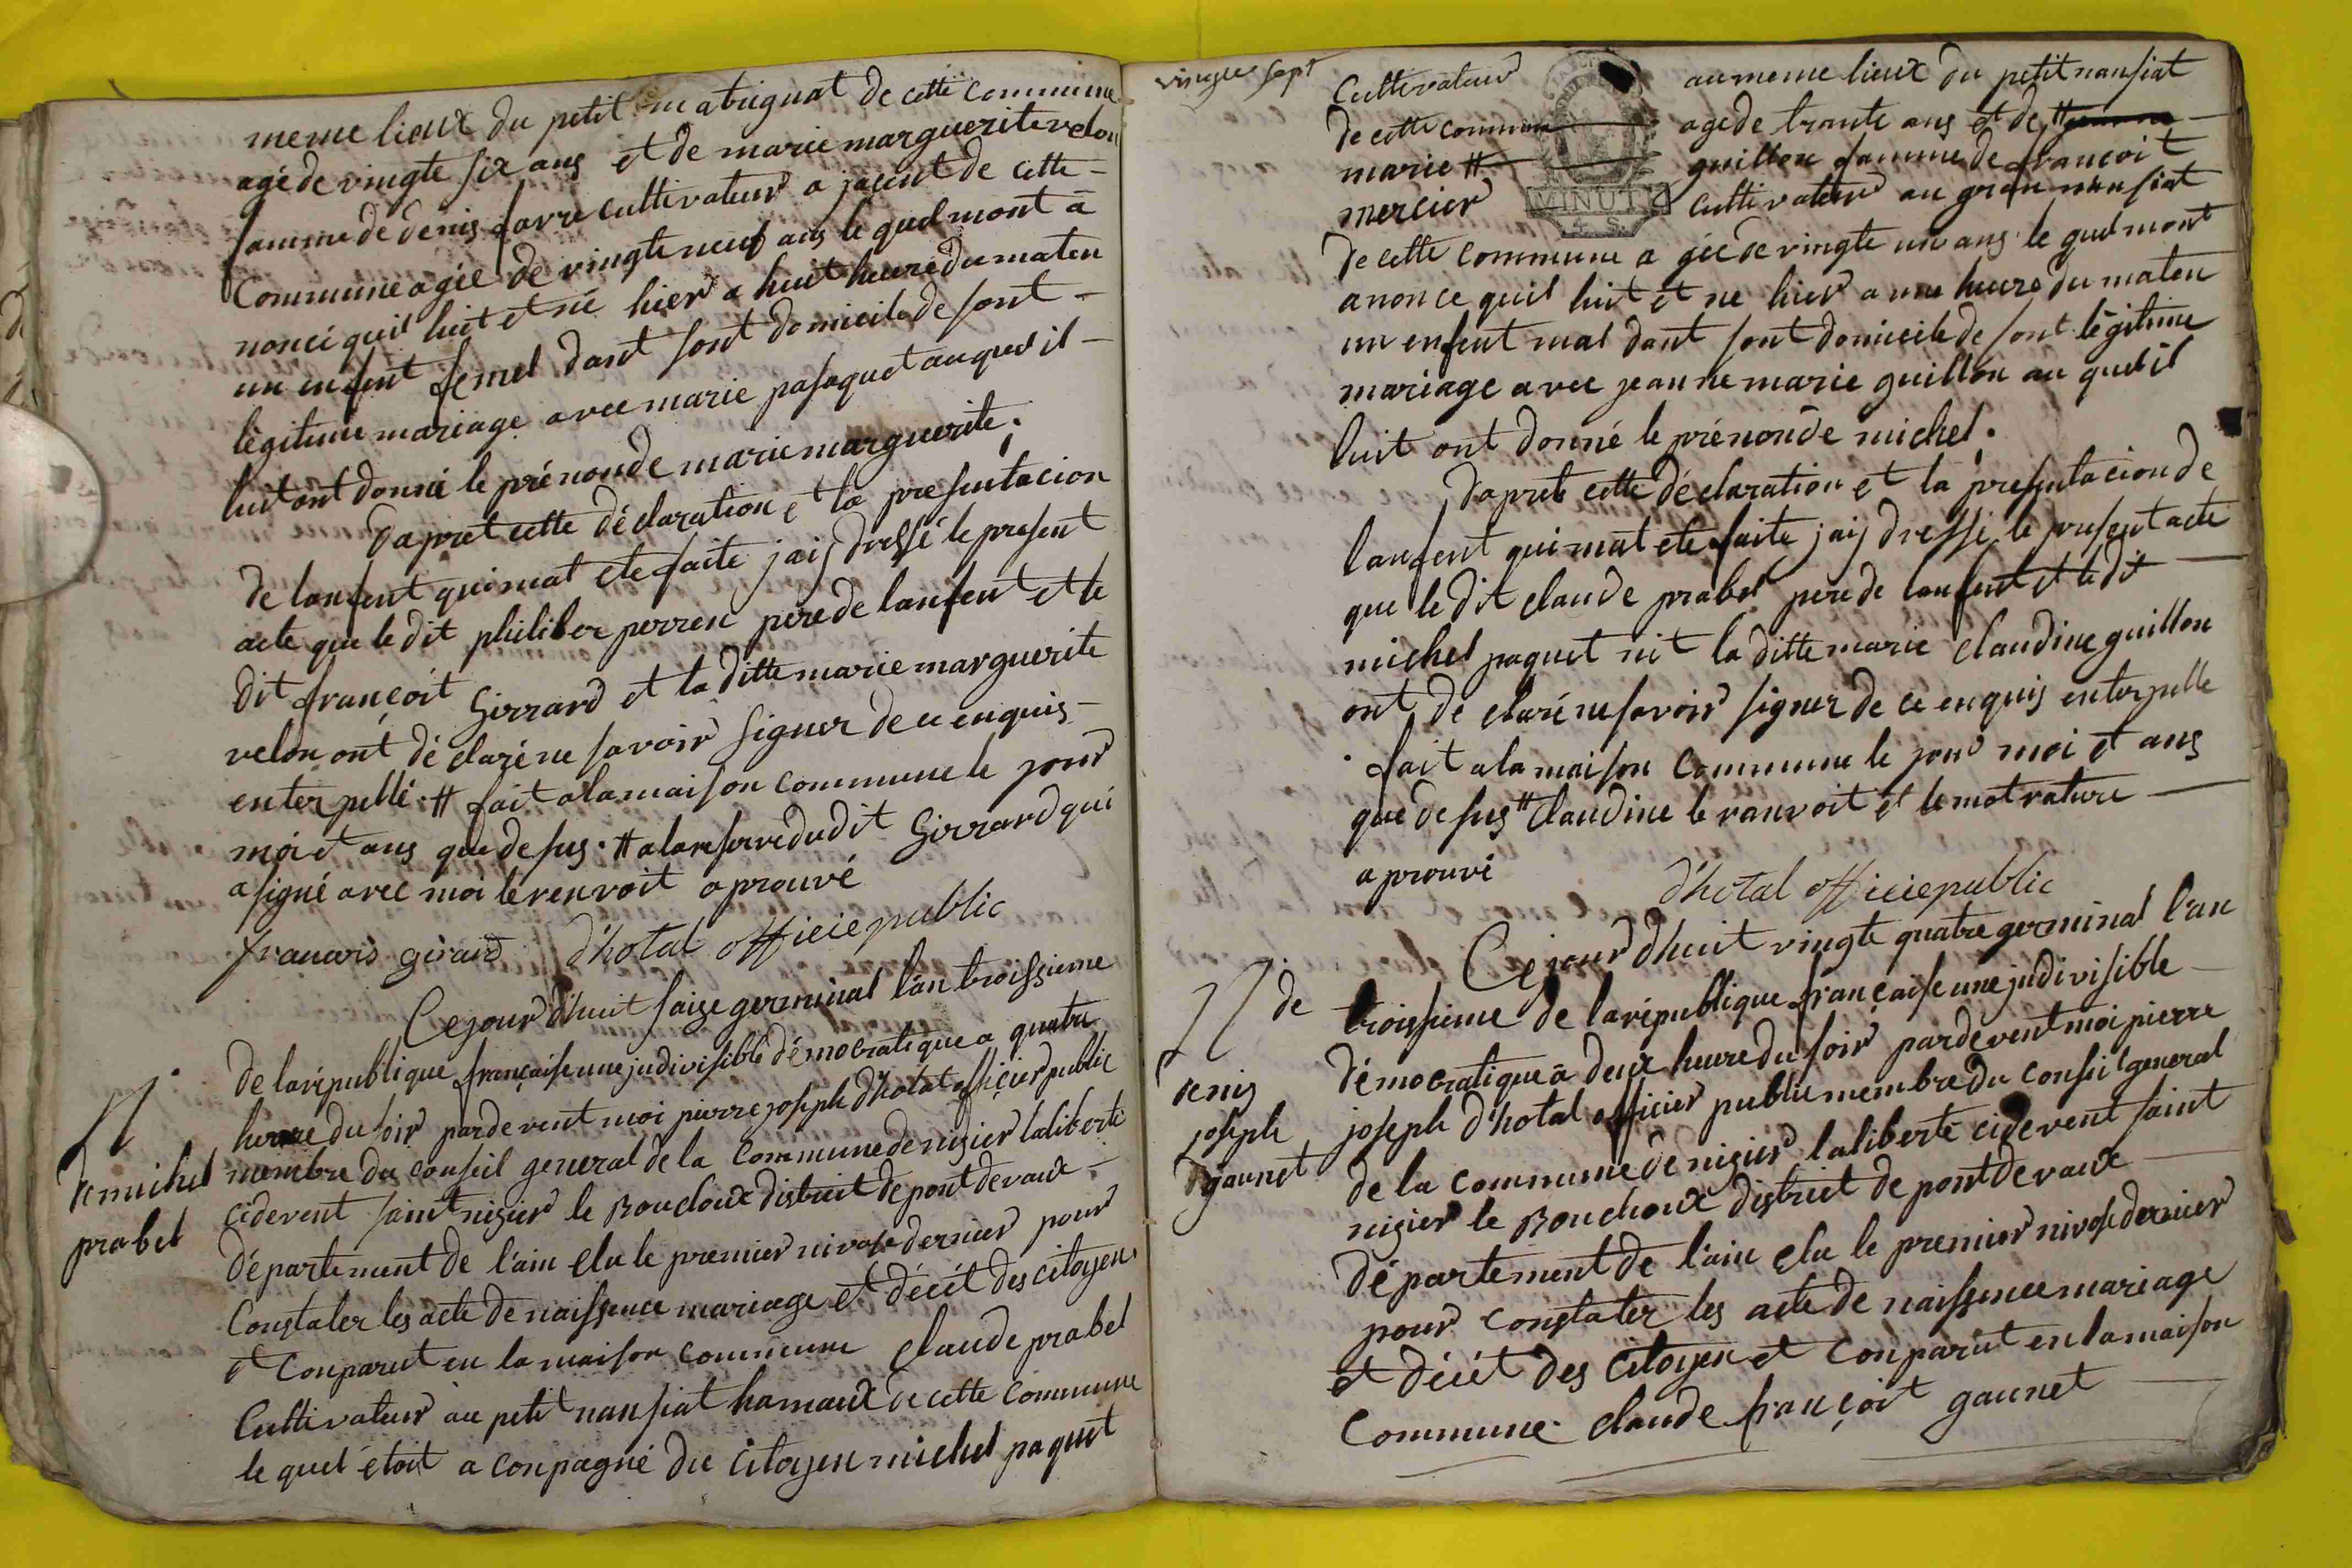 meme lieux du petit matrignat de cette commune
agé de vingte six ans et de marie marguerite velon
famme de denis favre cultivateur a jacent de cette -
Commune agée de vingte neuf ans le quel mont à
noncé quil luit et né hier a huit heure du maten
un enfent femel dant sont domicile de sont -
légitime mariage avec marie pasaquet auquel il -
luit ont donné le prénon de marie marguerite.
Dapret cette déclaration et la presentacion
de lanfent qui mat ete faite jaij dressé le present
acte que le dit philiber perren pere de lanfent et le
dit françoit Girrard et la ditte marie marguerite
velon ont dé claré ne savoir signer de ce enquis -
enterpellé # fait a la maison commune le jour
moi et ans que desus . # a la reserve du dit Girrard qui
a signé avec moi le renvoit aprouvé
franæois girard d'hotal officie public
Ce jour dhuit saize germinal l'an troissieme
de la république française une jndivisible démocratique a quatre
heure du soir pardevent moi pierre joseph d'hotal officier public
membre du conseil general de la Commune de nisier laliberté
cidevent saint nisier le Bouchoux district de pont de vaux -
département de l'ain elu le premier nivose dernier pour
Constater les acte de naissence mariage et décét des citoyen
et Conparut en la maison commune Claude prabel
Cultivateur au petit nansiat hamaux de cette commune
le quel étoit a conpagné du Citoyen michel paquet
N.
de michel
prabel
vingte sept
Cultivateur au meme lieux du petit nansiat
de cette commune agé de trante ans et de #
marie # guillon famme de françoit
mercier cultivateur au gran nansiat
MINUTE
4. S.
de cette commune a gée de vingte un ans le quel mont
anonce quil luit et ne hier a une heure du maten
un enfent mal dant sont domicile de sont légitime
mariage avec jeanne marie guillon au quel il
luit ont donné le prénon de michel .
Daprets cette déclaration et la presentacion de
lanfent qui mat ete faite jaij dressé le present acte
que le dit claude prabel pere de lanfent et le dit
michel paquet nit la ditte marie claudine guillon
ont de claré ne savoir signer de ce enquis enterpelle
. fait a la maison Commune le jour moi et ans
que desus # Claudine le ranvoit et le mot rature
aprouvé
d'hotal officie public
Ce jour dhuit vingte quatre germinal l'an
troissieme de la république française une jndivisible
démocratique a deux heure du soir pardevent moi pierre
joseph d'hotal officier public membre du conseil general
de la commune de nisier laliberté cidevent saint
nisier le Bouchoux district de pont de vaux
département de l'ain elu le premier nivose dernier
pour constater les acte de naissence mariage
et décét des Citoyen et Conparut en la maison
Commune Claude françoit gaunet
N. de
denis
joseph
gaunet